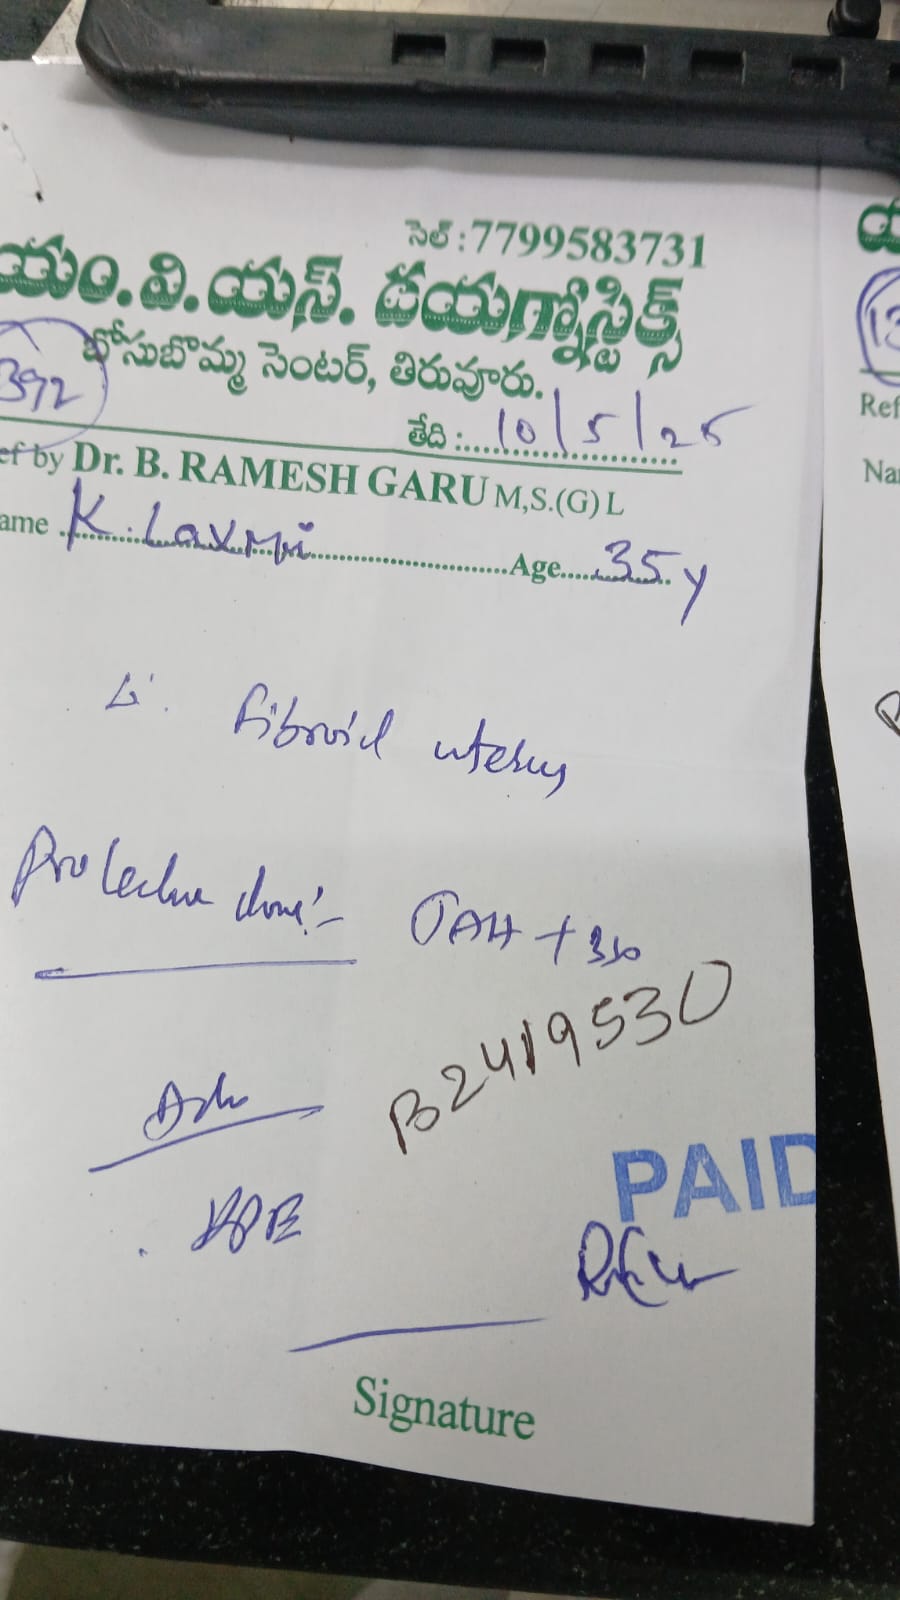 సెల్ : 7799583731
యం.వి.యస్. డయగ్నోస్టిక్స్
బోసుబొమ్మ సెంటర్, తిరువూరు.
392
తేది : 10/5/25
ef by Dr. B. RAMESH GARU M,S.(G) L
ame K. Laxmi Age 35y
Fibroid uterus
Procedure done:- TAH + BSO
B2419530
Adv
HPE
PAID
Signature
13
Ref
Na